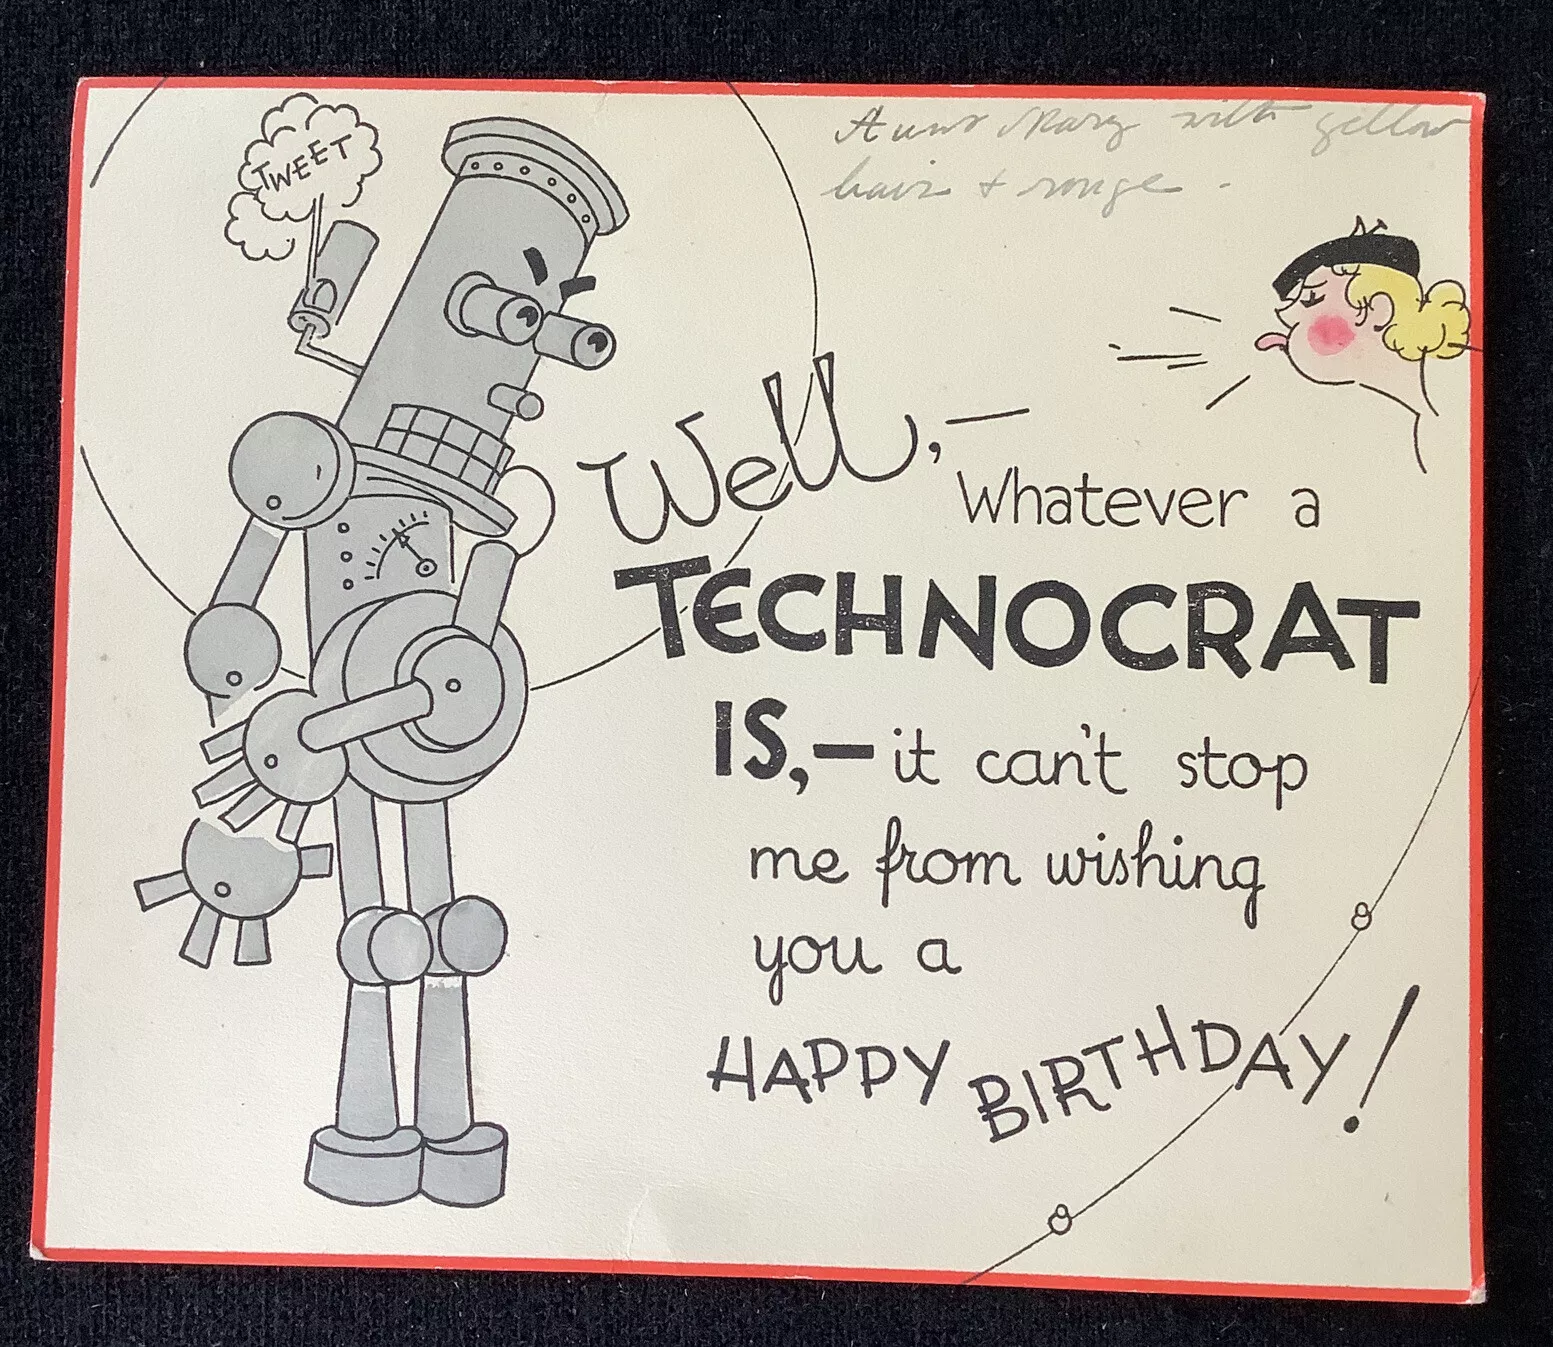 Aunt Mary with yellow
hair + rouge.
TWEET
Well,—
Whatever a
TECHNOCRAT
IS,— it can't stop
me from wishing
you a
HAPPY BIRTHDAY!